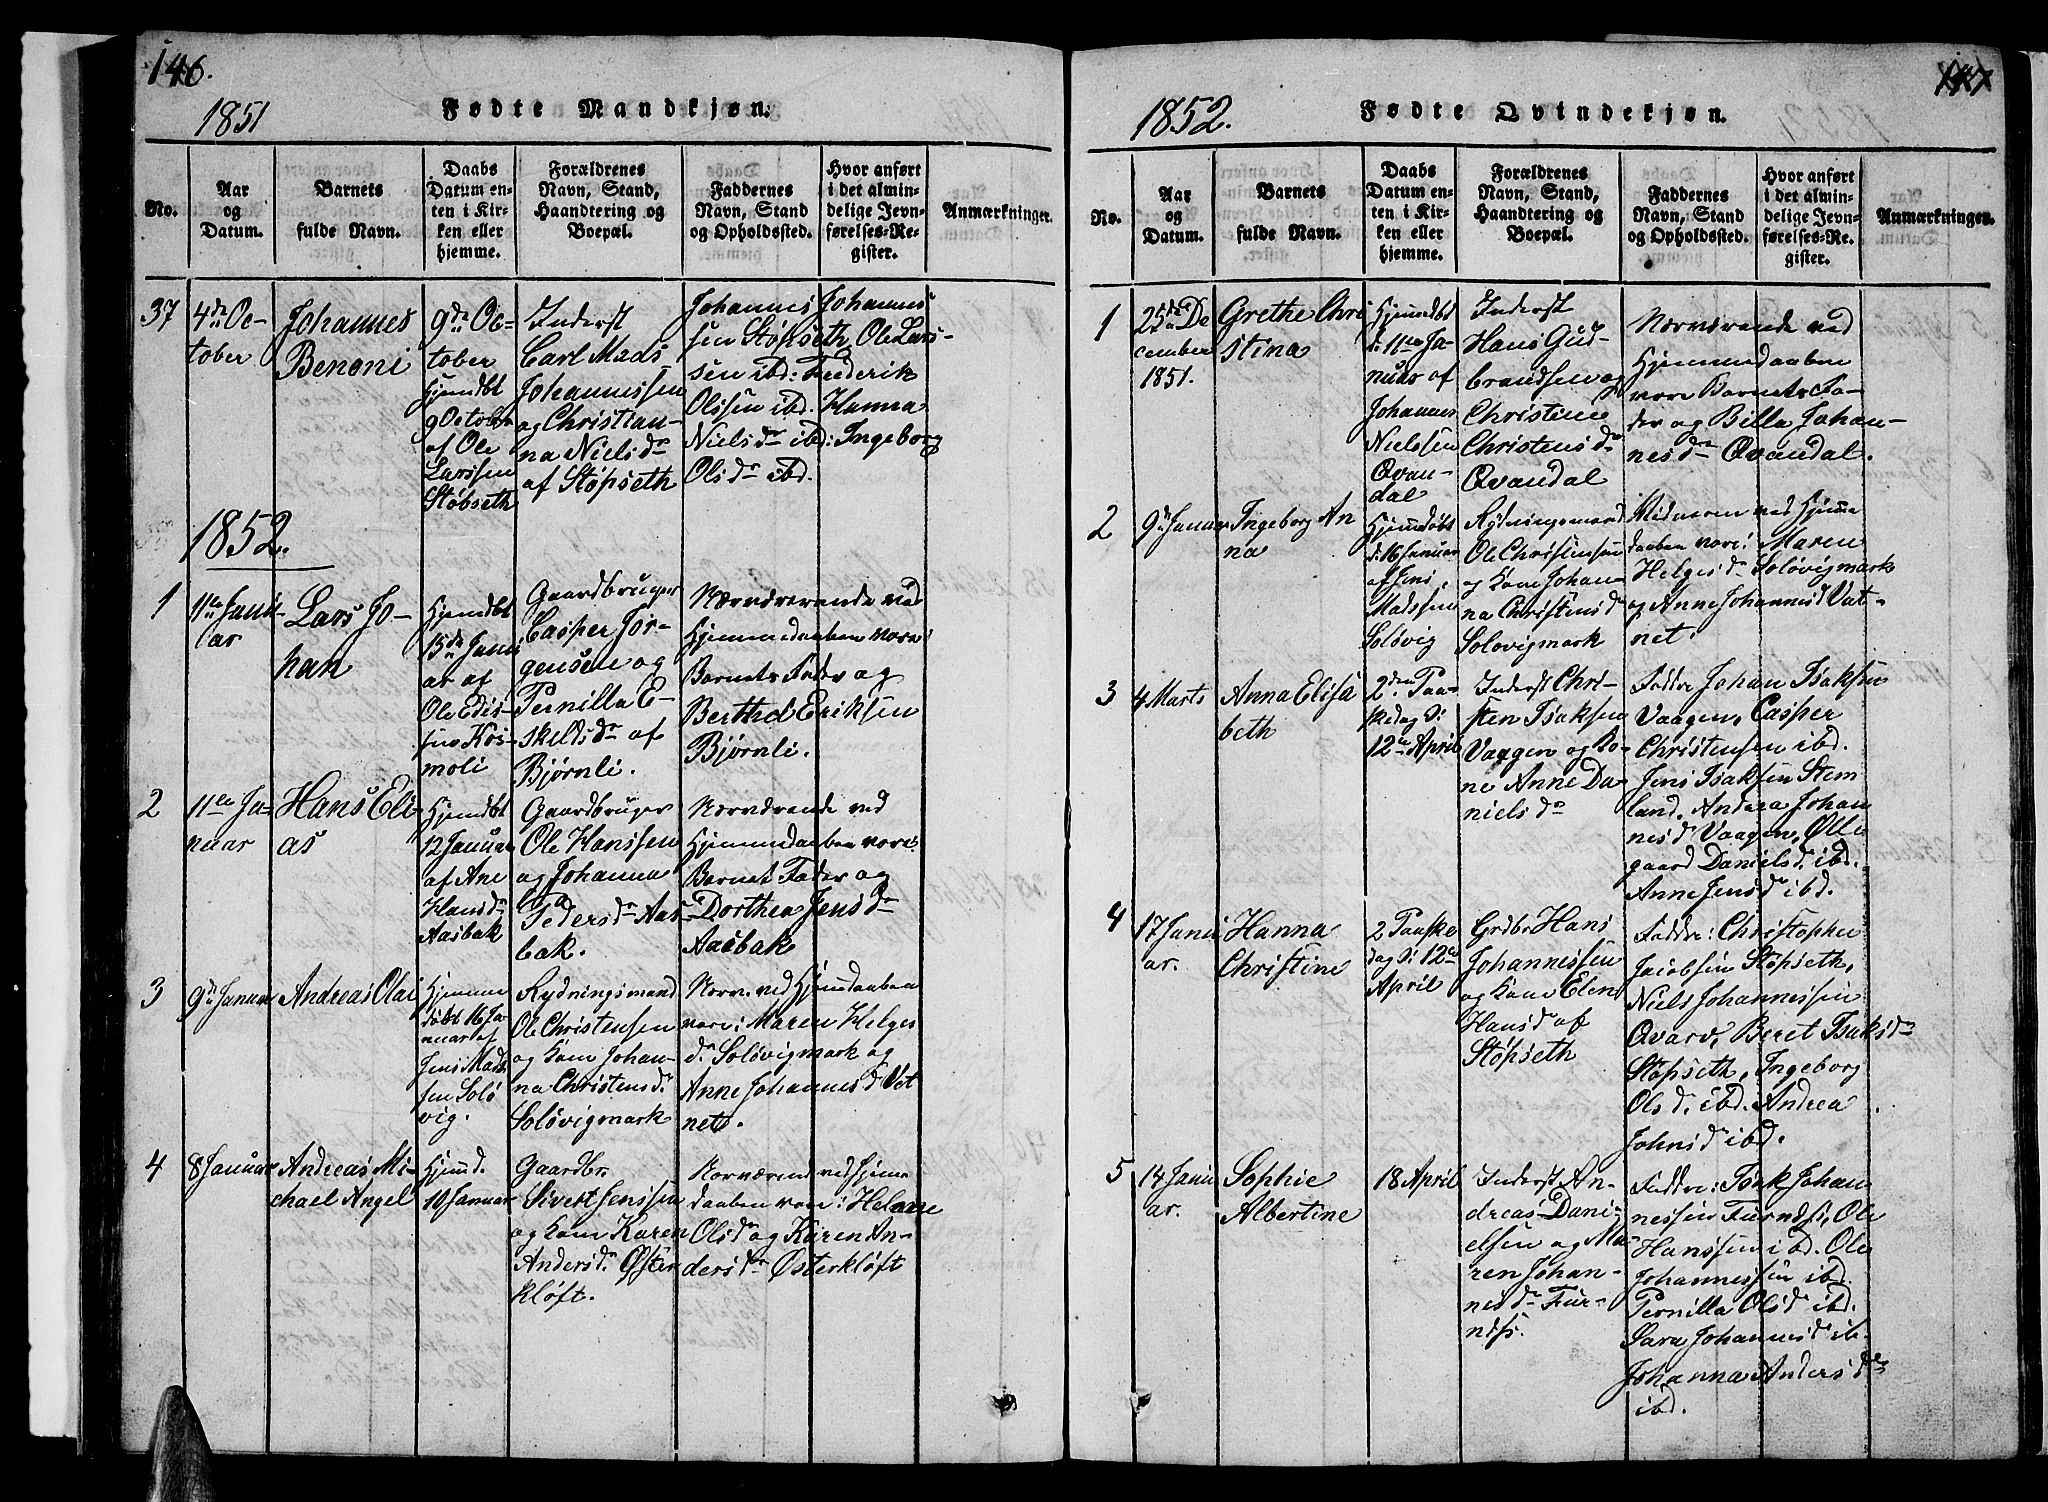 146.
1851
Fødte Mandkjøn.
No.
Aar
og
Datum.
Barnets
fulde Navn.
Daabs
Datum en-
ten i Kir-
ken eller
hjemme.
Forældrenes
Navn, Stand,
Haandtering og
Boepæl.
Faddernes
Navn, Stand
og Opholdssted.
Hvor anført
i det almin-
delige Jevn-
førelses-Re-
gister.
Anmærkninger.
37
4de Oc-
tober
Johannes
Benoni
9de Oc-
tober
Hjemdbt
9 October
af Ole
Larssen
Støbseth
Inderst
Carl Mads
Johannessen
og Christian-
na Nielsdr
af Støpseth
Johannes Johannes
sen Støpseth, Ole Lars-
sen ibd: Frederik
Olssen ibd. Hanna
Nielsdr ibd: Ingeborg
Olsdr ibd.
1852.
1
11te Janu-
ar
Lars Jo-
han
Hjemdbt
15de Janu
ar af
Ole Edis-
sen Kos-
moli
Gaardbruger
Casper Jør-
gensen og
Pernilla E-
skeldsdr af
Bjørnli.
Nærværende ved
Hjemmedaaben vare:
Barnets Fader og
Berthel Eriksen
Bjørnli.
2
11te Ja-
nuar
Hans Eli-
as
Hjemdbt
12 Januar
af Ane
Hansdr
Aasbak
Gaardbruger
Ole Hanssen
og Johanna
Pedersdr Aas-
bak.
Nærværende ved
Hjemmedaaben vare:
Barnets Fader og
Dorthea Jensdr
Aasbak
3
9de Januar
Andreas Olai
Hjemme
døbt 16 Ja-
nuar af
Jens Mads
sen Solø
vig.
Rydningsmand
Ole Christensen
og Kone Johan-
na Christensd.
Soløvigmark
Nærv. ved Hjemdaaben
vare: Maren Helges
d. Soløvigmark og
Anne Johannesd Vat
net.
4
8 Januar
Andreas Mi-
chael Angel
Hjemd.
10 Januar
Gaardbr.
Sivert Jenssen
og Kone Karen
Andersd. Øster
kløft.
Nærværend ved Hjeme
daaben vare: Helene
Olsdr og Karen An-
dersdr Østerkløft
147
1852.
Fødte Qvindekjøn.
No.
Aar
og
Datum.
Barnets
fulde Navn.
Daabs
Datum en-
ten i Kir-
ken eller
hjemme.
Forældrenes
Navn, Stand,
Haandtering og
Boepæl.
Faddernes
Navn, Stand
og Opholdssted.
Hvor anført
i det almin-
delige Jevn-
førelses-Re-
gister.
Anmærkninger.
1
25de De
cember
1851.
Grethe Chri
stina
Hjemdbt
d. 11te Ja-
nuar af
Johannes
Nielsen
Qvan-
dal
Inderst
Hans Gud-
brandsen og
Christine
Christensdr
Qvandal
Nærværende ved
Hjemmedaaben
vare Barnets Fa-
der og Billa Johan-
nesdr Qvandal.
2
9de Januar
Ingeborg An
na
Hjemdøbt
d. 16 Januar
af Jens
Madssen
Soløvig
Rydningsmand
Ole Christensen
og Kone Johan-
na Christensd
Soløvigmark
ved Hjemme
daaben vare: Maren
Helgesdr Soløvigmark
og Anne Johannesd Vat-
net.
3
4 Marts
Anna Elisa
beth
2den Paa-
skedag d:
12te April
Inderst Chri-
sten Isaksen
Vaagen og Ko-
ne Anne Da-
nielsdr
Faddre Johan Isaksen
Vaagen, Casper
Christensen ibd.
Jens Isaksen Stem
land, Andrea Johan
nesd Vaagen, Olle
gaard Danielsd. ibd.
Anne Jensd ibd.
4
17 Janu
ar.
Hanna
Christine
2 Paaske
dag d: 12te
April
Grdbr Hans
Johannessen
og Kone Elen
Hansd af
Støpseth
Faddre: Christopher
Jacobsen Støpseth,
Niels Johannessen
Qvarv, Beret Isaksdr
Støpseth, Ingeborg
Olsd. ibd. Andrea
Johnsd ibd.
5
14 Janu
ar.
Sophie
Albertine
18 April
Inderst An-
dreas Dani-
elsen og Ma-
ren Johan-
nesdr Fur-
nds.
Faddre: Isak Johan
nessen Furnds, Ole
Hanssen ibd. Ole
Johannessen ibd.
Pernilla Olsd ibd.
Sara Johannesd ib.
Johanna Andersdr
ibd.